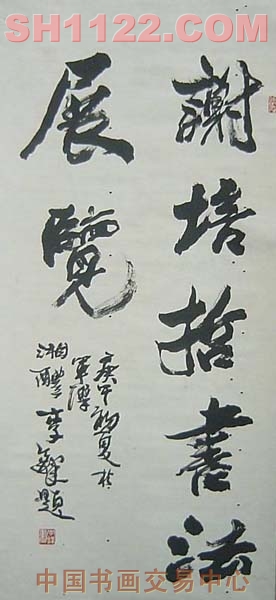 SH1122.COM
謝培哲書法
展覽
庚午初夏於
軍博
湘醴李鐸題
中国书画交易中心